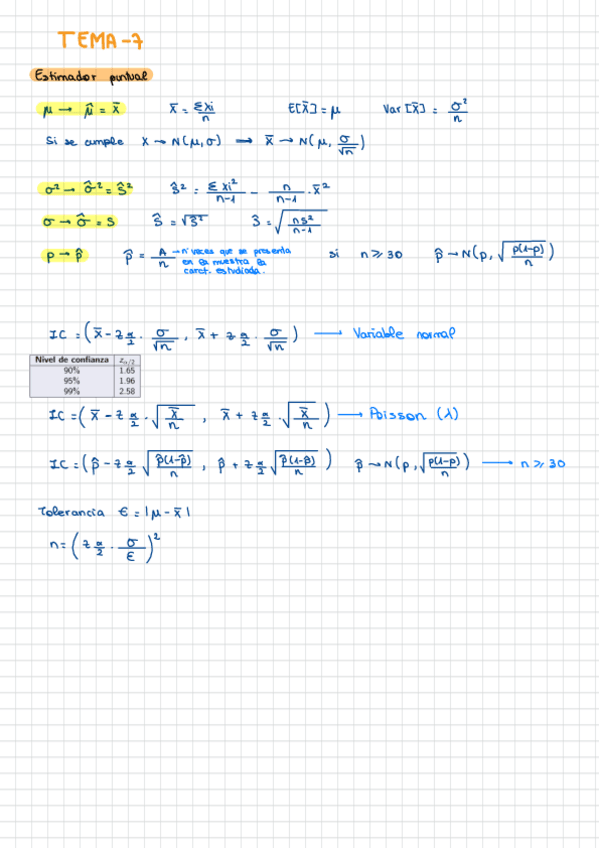 TEMA-7
Estimador puntual
μ → μ̂ = x̄   x̄ = Σxi/n   E[x̄] = μ   Var[x̄] = σ²/n
Si se cumple x → N(μ,σ) ⟹ x̄ → N(μ, σ/√n)
σ² → σ̂² = ŝ²   ŝ² = Σxi²/n-1 - n/n-1 · x̄²
σ → σ̂ = s   ŝ = √ŝ²   ŝ = √(ns²/n-1)
p → p̂   p̂ = A/n → nº veces que se presenta en la muestra la caract. estudiada.   si n ≥ 30   p̂ → N(p, √(p(1-p)/n))
IC = (x̄ - z α/2 · σ/√n , x̄ + z α/2 · σ/√n) → Variable normal
Nivel de confianza z α/2
90% 1.65
95% 1.96
99% 2.58
IC = (x̄ - z α/2 · √(x̄/n) , x̄ + z α/2 · √(x̄/n)) → Poisson (λ)
IC = (p̂ - z α/2 √(p̂(1-p̂)/n) , p̂ + z α/2 √(p̂(1-p̂)/n))   p̂ → N(p, √(p(1-p)/n)) → n ≥ 30
Tolerancia ε = |μ - x̄|
n = (z α/2 · σ/ε)²